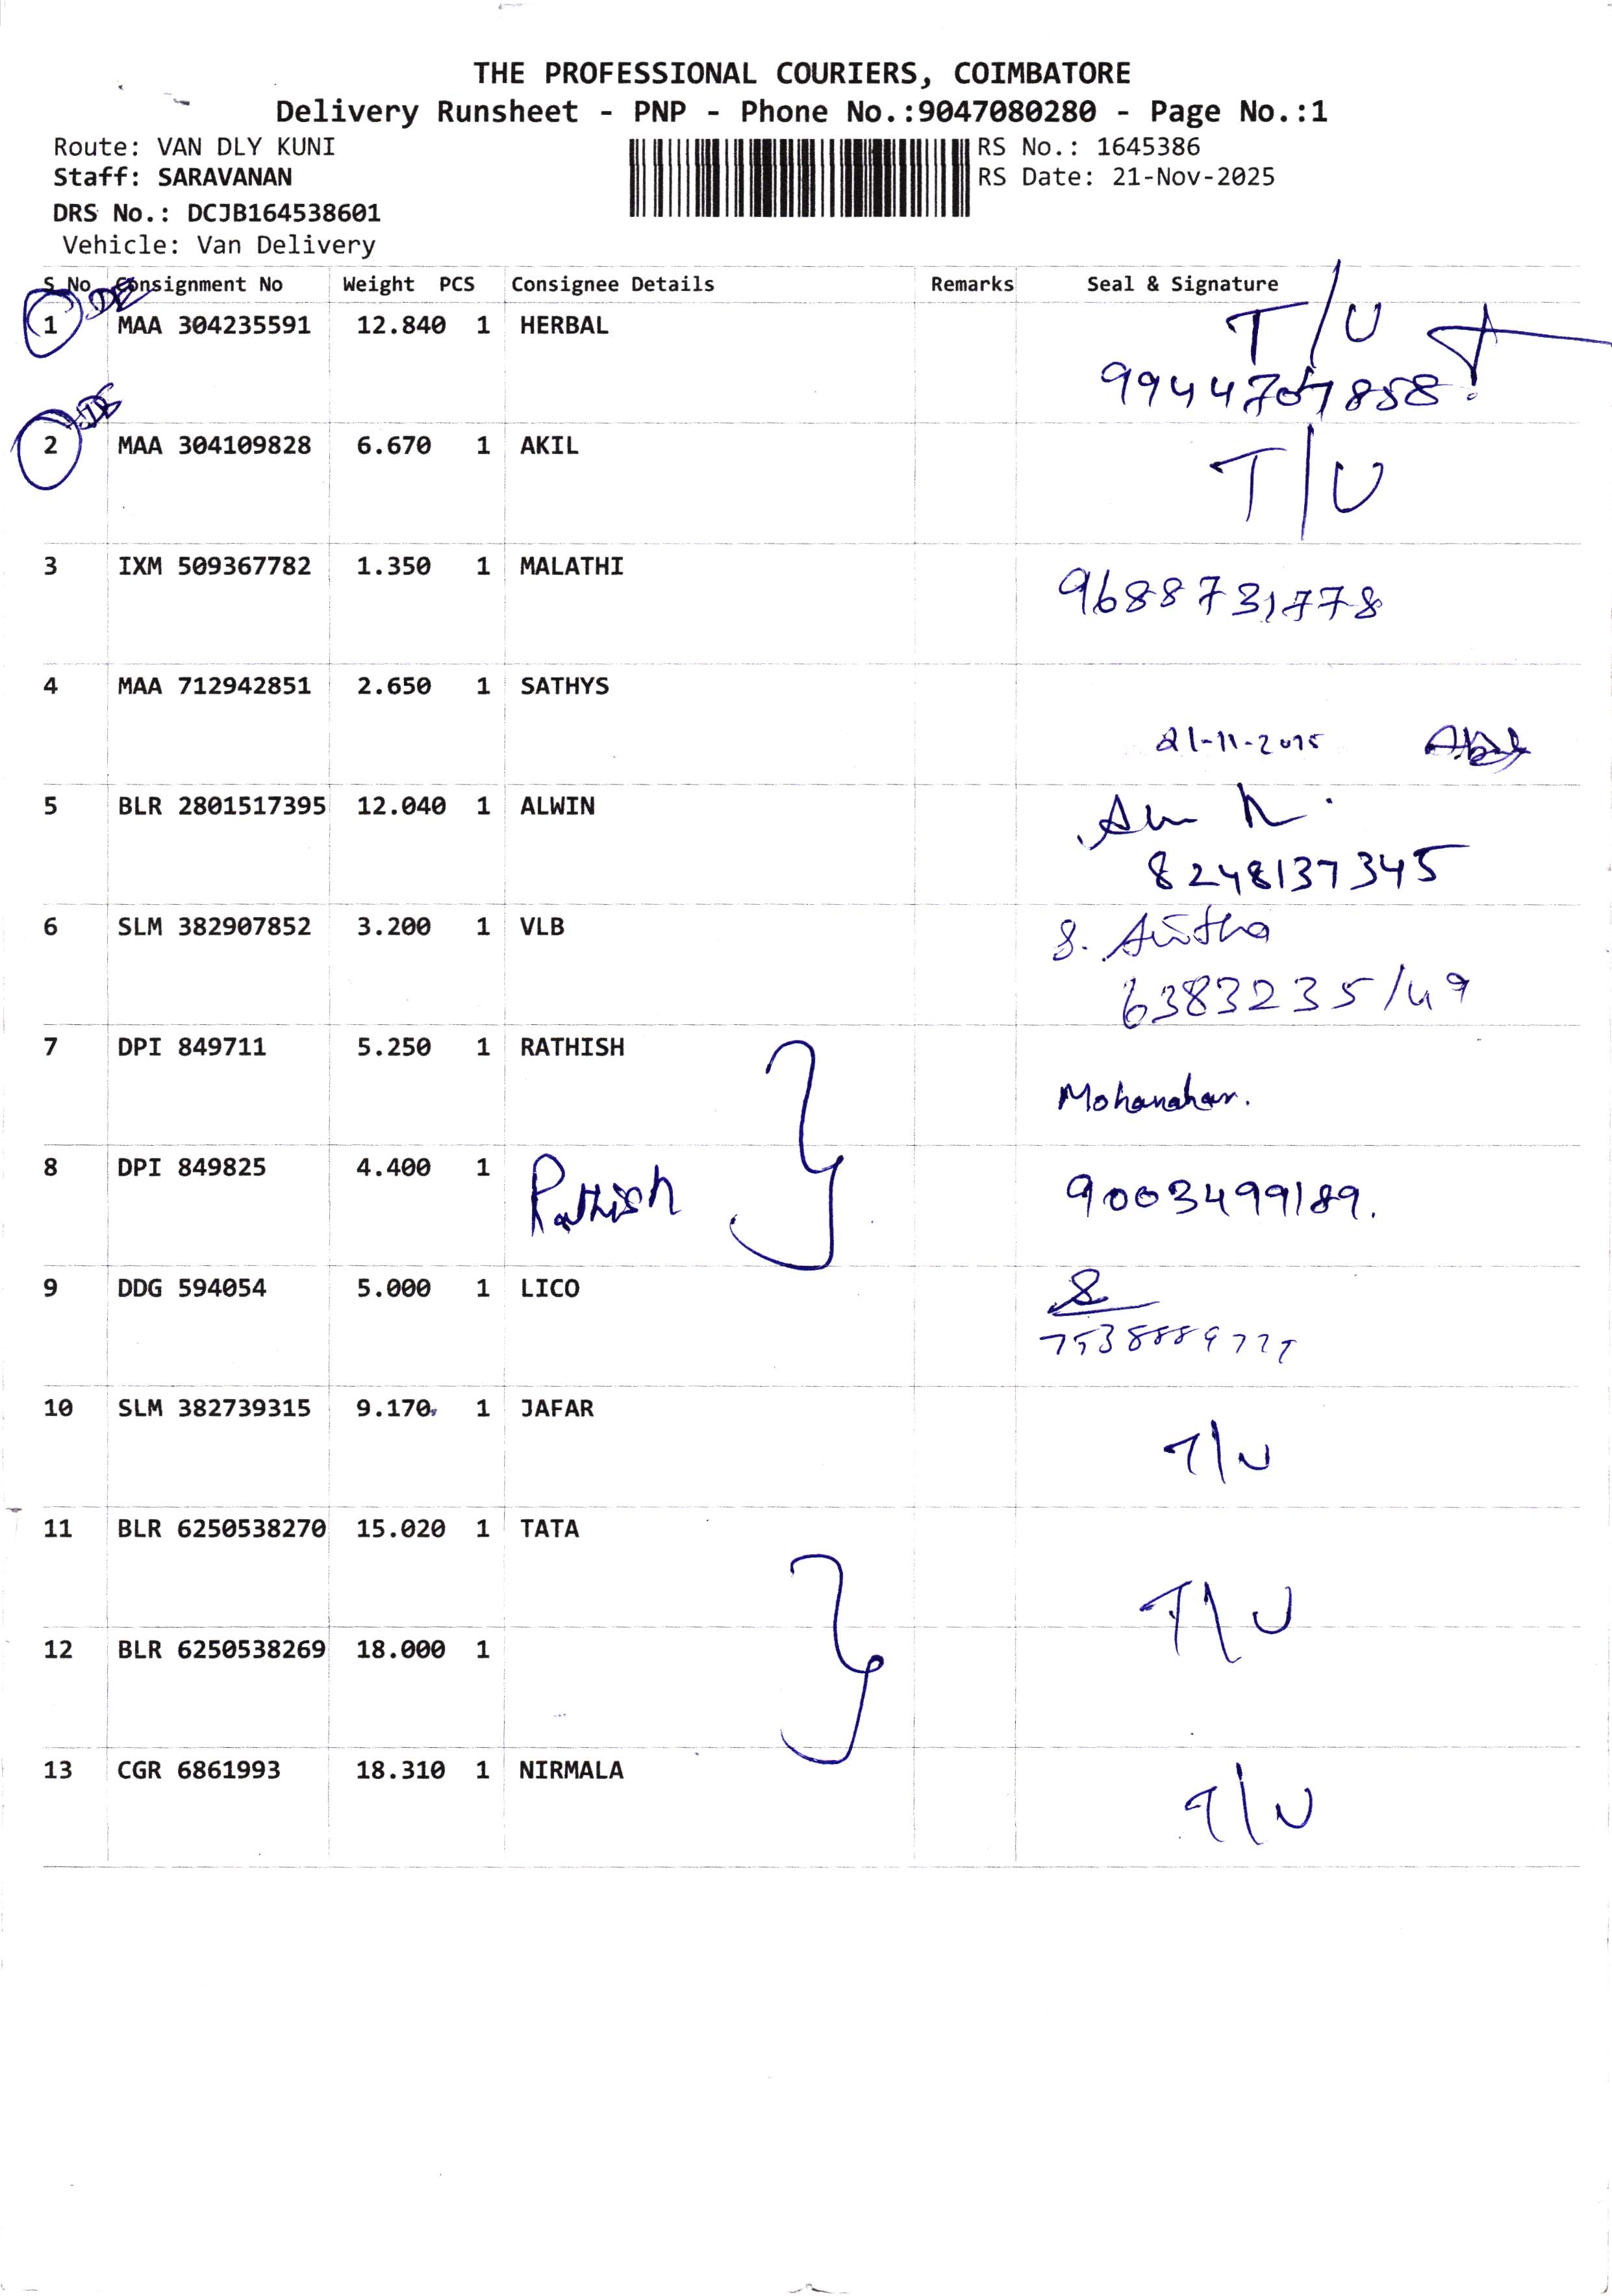 THE PROFESSIONAL COURIERS, COIMBATORE
Delivery Runsheet - PNP - Phone No.:9047080280 - Page No.:1
Route: VAN DLY KUNI
RS No.: 1645386
Staff: SARAVANAN
RS Date: 21-Nov-2025
DRS No.: DCJB164538601
Vehicle: Van Delivery
S No Consignment No Weight PCS Consignee Details Remarks Seal & Signature
1 MAA 304235591 12.840 1 HERBAL T/U
2 MAA 304109828 6.670 1 AKIL T/U
3 IXM 509367782 1.350 1 MALATHI
9688731778
4 MAA 712942851 2.650 1 SATHYS
5 BLR 2801517395 12.040 1 ALWIN
8248137345
6 SLM 382907852 3.200 1 VLB
6383235149
7 DPI 849711 5.250 1 RATHISH
8 DPI 849825 4.400 1 Rathish 9003499189.
9 DDG 594054 5.000 1 LICO
10 SLM 382739315 9.170 1 JAFAR
T/U
11 BLR 6250538270 15.020 1 TATA
T/U
12 BLR 6250538269 18.000 1
13 CGR 6861993 18.310 1 NIRMALA
T/U